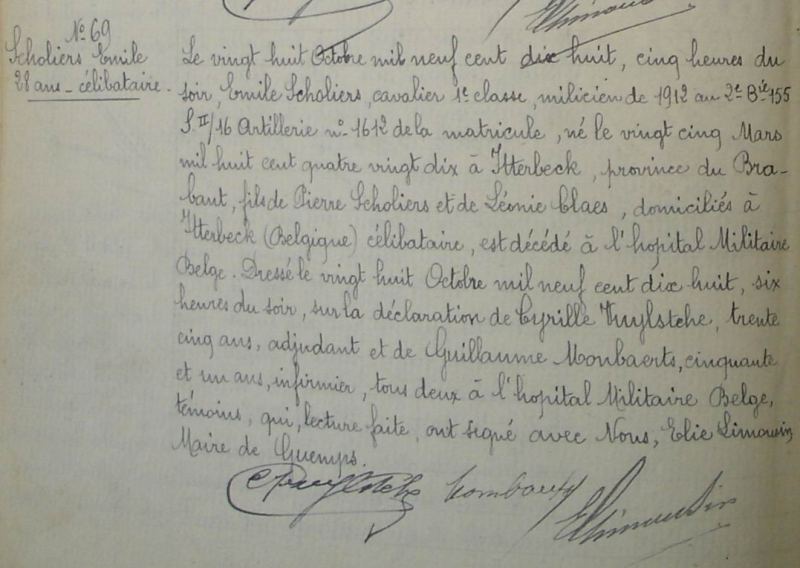 N° 69
Scholiers Emile
28 ans - célibataire -
Le vingt huit Octobre mil neuf cent dix huit, cinq heures du
soir, Emile Scholiers, cavalier 1e classe, milicien de 1912 au 2e Bie 155
S II/16 Artillerie n° 1612 de la matricule, né le vingt cinq Mars
mil huit cent quatre vingt dix à Itterbeck, province du Bra-
bant, fils de Pierre Scholiers et de Léonie Claes, domiciliés à
Itterbeck (Belgique) célibataire, est décédé à l'hopital Militaire
Belge. Dressé le vingt huit Octobre mil neuf cent dix huit, six
heures du soir, sur la déclaration de Cyrille Thuylstche, trente
cinq ans, adjudant et de Guillaume Mombaerts, cinquante
et un ans, infirmier, tous deux à l'hopital Militaire Belge,
témoins, qui, lecture faite, ont signé avec Nous, Elie Limousin,
Maire de Guemps.